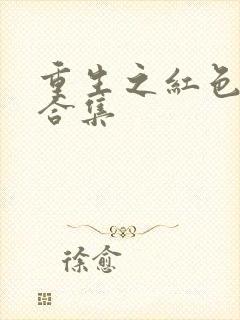 重生之红色
合集
徐愈